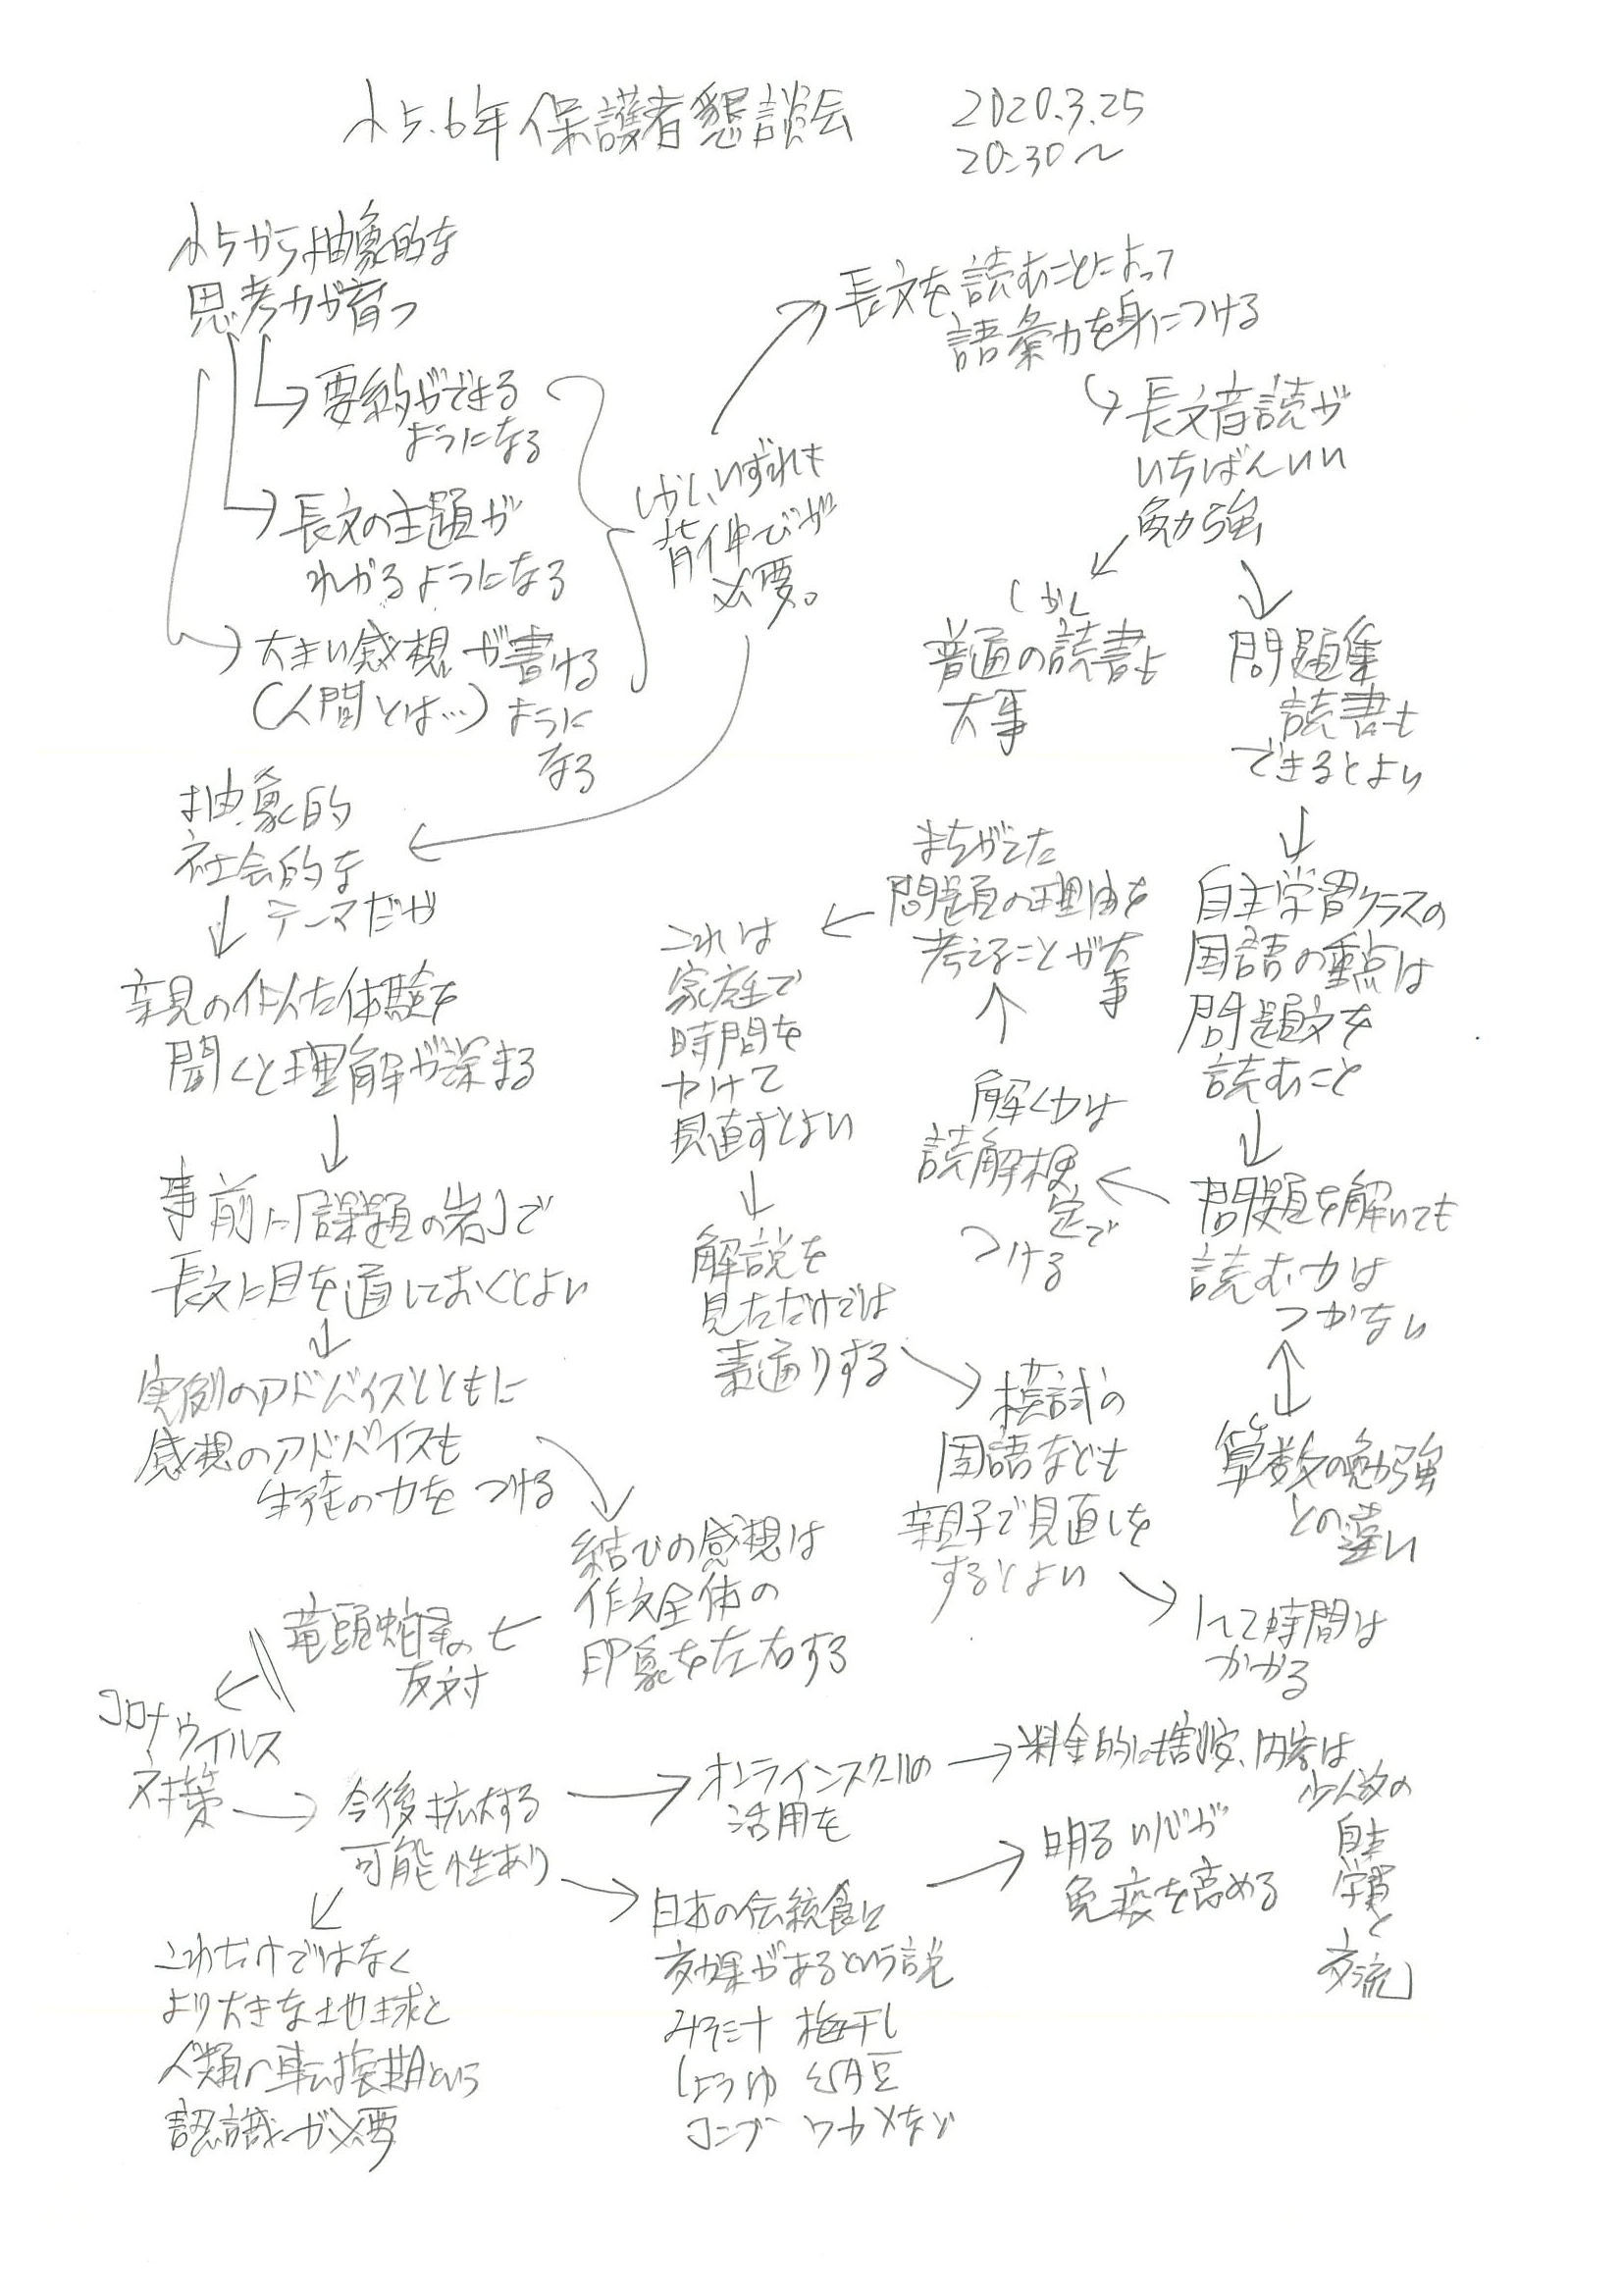 小5.6年保護者懇談会
2020.3.25
20:30〜
小5から抽象的な
思考力が育つ
要約ができる
ようになる
長文の主題が
わかるようになる
大きい感想が書ける
(人間とは…)ように
なる
しかし、いずれも
背伸びが
必要。
長文を読むことによって
語彙力を身につける
長文音読が
いちばんいい
勉強
しかし
普通の読書も
大事
問題集
読書も
できるとよい
自主学習クラスの
国語の重点は
問題文を
読むこと
問題を解いても
読む力は
つかない
算数の勉強
との違い
解く力は
読解検
定で
つける
まちがえた
問題の理由を
考えることが大
事
これは
家庭で
時間を
かけて
見直すとよい
解説を
見ただけでは
素通りする
模試の
国語なども
親子で見直しを
するとよい
1hて時間は
かかる
抽象的
社会的な
テーマだが
親の似た体験を
聞くと理解が深まる
事前に「課題の岩」で
長文に目を通しておくとよい
実例のアドバイスとともに
感想のアドバイスも
生徒の力をつける
結びの感想は
作文全体の
印象を左右する
竜頭蛇尾の
反対
コロナウイルス
対策
今後拡大する
可能性あり
オンラインスクールの
活用を
料金的に割安、内容は
少人数の
自主
学習
と
交流
日本の伝統食に
効果があるという説
みそ汁 梅干し
しょうゆ 納豆
コンブ ワカメなど
明るい心が
免疫を高める
これだけではなく
より大きな地球と
人類の転換期という
認識が必要